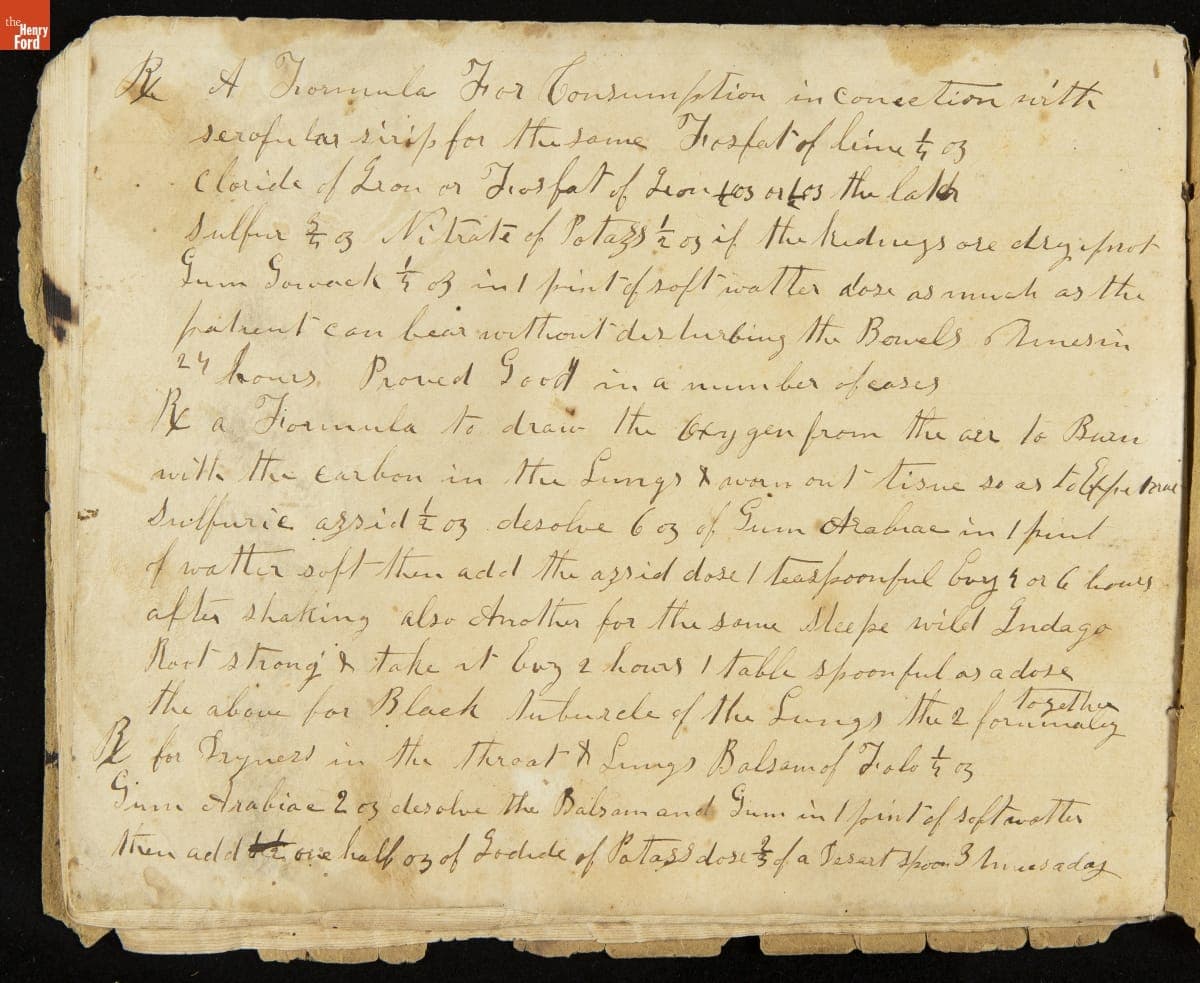 the
Henry
Ford
Rx A Formula For Consumption in conection with
scrofular sirip for the same Fosfat of lime 1/4 oz
Cloride of Iron or Fosfat of Iron oz or oz the latter
Sulfur oz Nitrate of Potass 1/2 oz if the kidneys are dry if not
Gum 1/4 oz in 1 pint of soft watter dose as much as the
patient can bear without desturbing the Bowels 6 times in
24 hours Proved Good in a number of cases
Rx a Formula to draw the Oxygen from the aer to Burn
with the carbon in the Lungs & worn out tisue so as to
Sulfuric assid 1/2 oz desolve 6 oz of Gum Arabiac in 1 pint
of watter soft then add the assid dose 1 teaspoonful Evy 4 or 6 hours
after shaking also Another for the same steepe wild Indago
Root strong & take it Evy 2 hours 1 table spoonful as a dose
the above for Black of the Lungs the 2 together
Rx for Dryness in the throat & Lungs Balsam of Tolo 1/4 oz
Gum Arabiac 2 oz desolve the Balsam and Gum in 1 pint of soft watter
then add one half oz of Iodide of Potass dose 2/3 of a Desart spoon 3 times a day